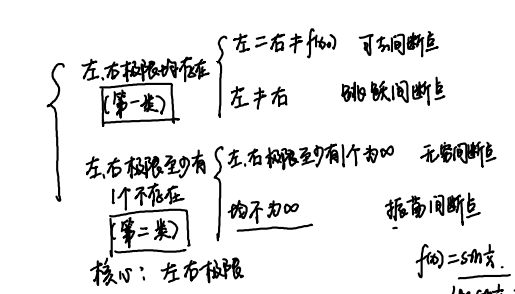 左、右极限均存在
(第一类)
左=右≠f(x₀) 可去间断点
左≠右 跳跃间断点
左、右极限至少有
1个不存在
(第二类)
左、右极限至少有1个为∞ 无穷间断点
均不为∞ 振荡间断点
核心:左右极限
f(x)=sin